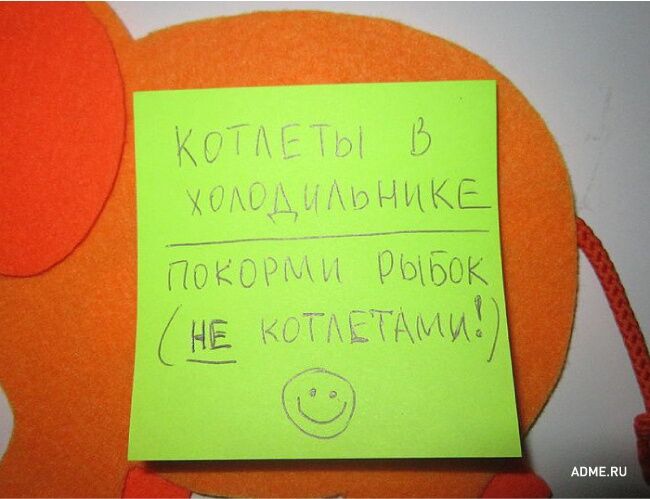 КОТЛЕТЫ В
ХОЛОДИЛЬНИКЕ
ПОКОРМИ РЫБОК
(НЕ КОТЛЕТАМИ!)
ADME.RU